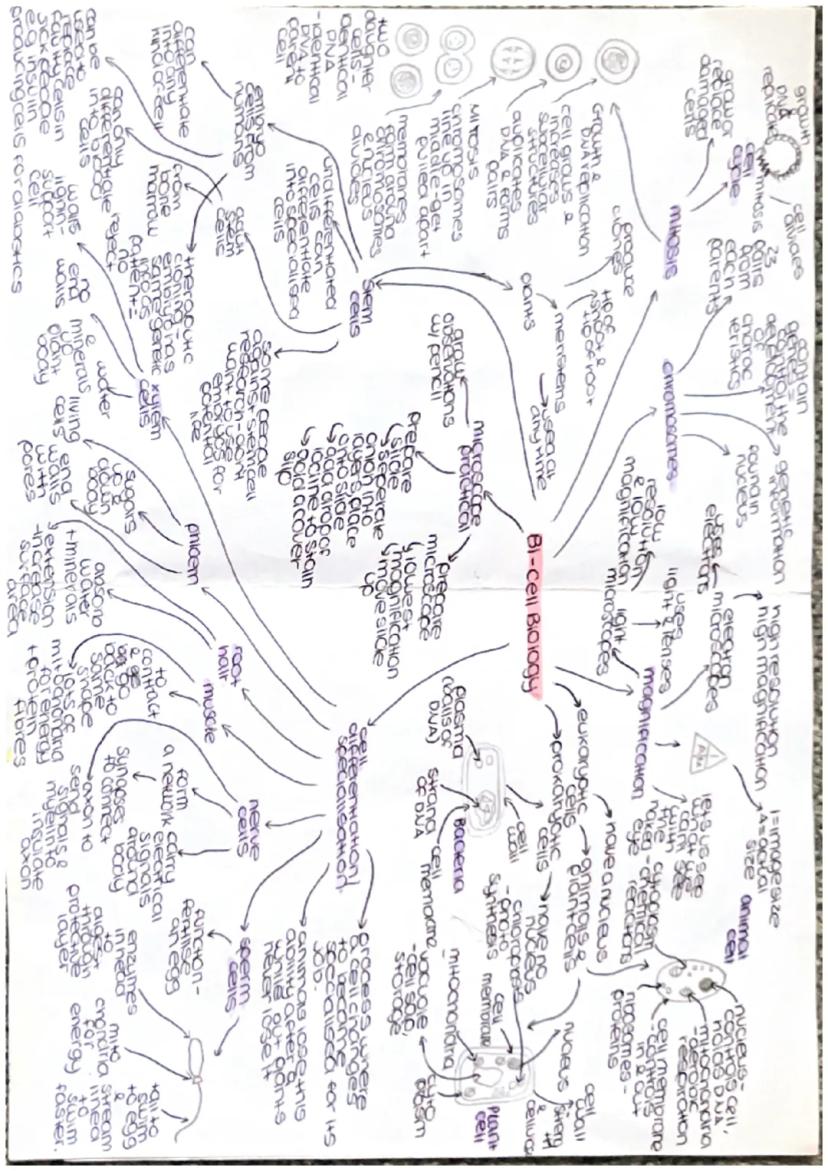 B1-Cell Biology
mitosis
cell
cycle
growth
DNA
replicate
mitosis
cell
divides
grow &
replace
damaged
cells
Growth &
DNA replication
cell grows &
increases
subcellular
structures
duplicates
DNA & forms
pairs
mitosis
chromosomes
line up in
middle - get
pulled apart
membranes
form around
chromosomes
divides
two
daughter
cells -
identical
DNA
- identical
DNA to
parent
chromosomes
23
pairs
from
each
parents
contain
genes =
control the
development
of
charac
teristics
genetic
information
found in
nucleus
stem
cells
plants
produce
clones
meristems
tips of
shoot &
tip of root
used at
anytime
undifferentiated
cells can
differentiate
into specialised
cells
embryo
cells from
humans
can
differentiate
into any
kind of cell
can be
used to
replace
faulty cells in
sick people
e.g. insulin
producing cells for diabetics
adult
stem
cells
from
bone
marrow
can only
differentiate
into body
cells
therapeutic
cloning -
embryo has
same genes
as
patient =
no
reject
some people
against stem cell
research - don't
want to use
embryos for
potential
life
microscope
practical
draw
observations
w/ pencil
prepare
slide
↳ seperate
onion into
layers, place
onto slide
↳ add drop of
iodine to stain
↳ add a cover
slip
prepare
microscope
↳ lowest
magnification
↳ move slide
up
magnification
light
microscopes
uses
light & lenses
low
resolution
& low
magnification
electron
microscopes
uses
electrons
high resolution
high magnification
I = image size
A = actual
size
lets us see
what we
can't see
with
naked
eye
eukaryotic
cells
have a nucleus
animals &
plant cells
prokaryotic
cells
have no
nucleus
Bacteria
plasma
cell
wall
strand
of DNA
cell
membrane
animal
cell
nucleus -
controls cell,
holds DNA
mitochondria
- aerobic
respiration
cell membrane
- controls
in & out
ribosomes -
proteins
cytoplasm
- chemical
reactions
plant
cell
nucleus
cell
wall
cell
membrane
mitochondria
vacuole
- cell sap,
storage
cyto
plasm
cell
differentiation/
specialisation
process where
a cell changes
to become
specialised for its
job.
animals lose this
ability after a
while but plants
never lose it
xylem
cells
water
&
minerals
up
plant
body
no
end
walls
walls
lignin -
support
cell
phloem
sugars
up &
down
body
living
cells
end
walls
with
pores
root
hair
absorb
water
+ minerals
extension
- increase
surface
area
muscle
contact
& go
back to
same
shape
lots of
mitochondria
for energy
+ protein
fibres
nerve
cells
form
a network
carry
electrical
signals
around
body
synapses
to connect
axon to
send
signals &
myelin to
insulate
axon
sperm
cells
function -
fertilise
an egg
enzymes
in head
to
digest
through
protective
layer
mito
chondria
for
energy
tail to
swim
to egg
&
stream
lined
to
swim
faster.